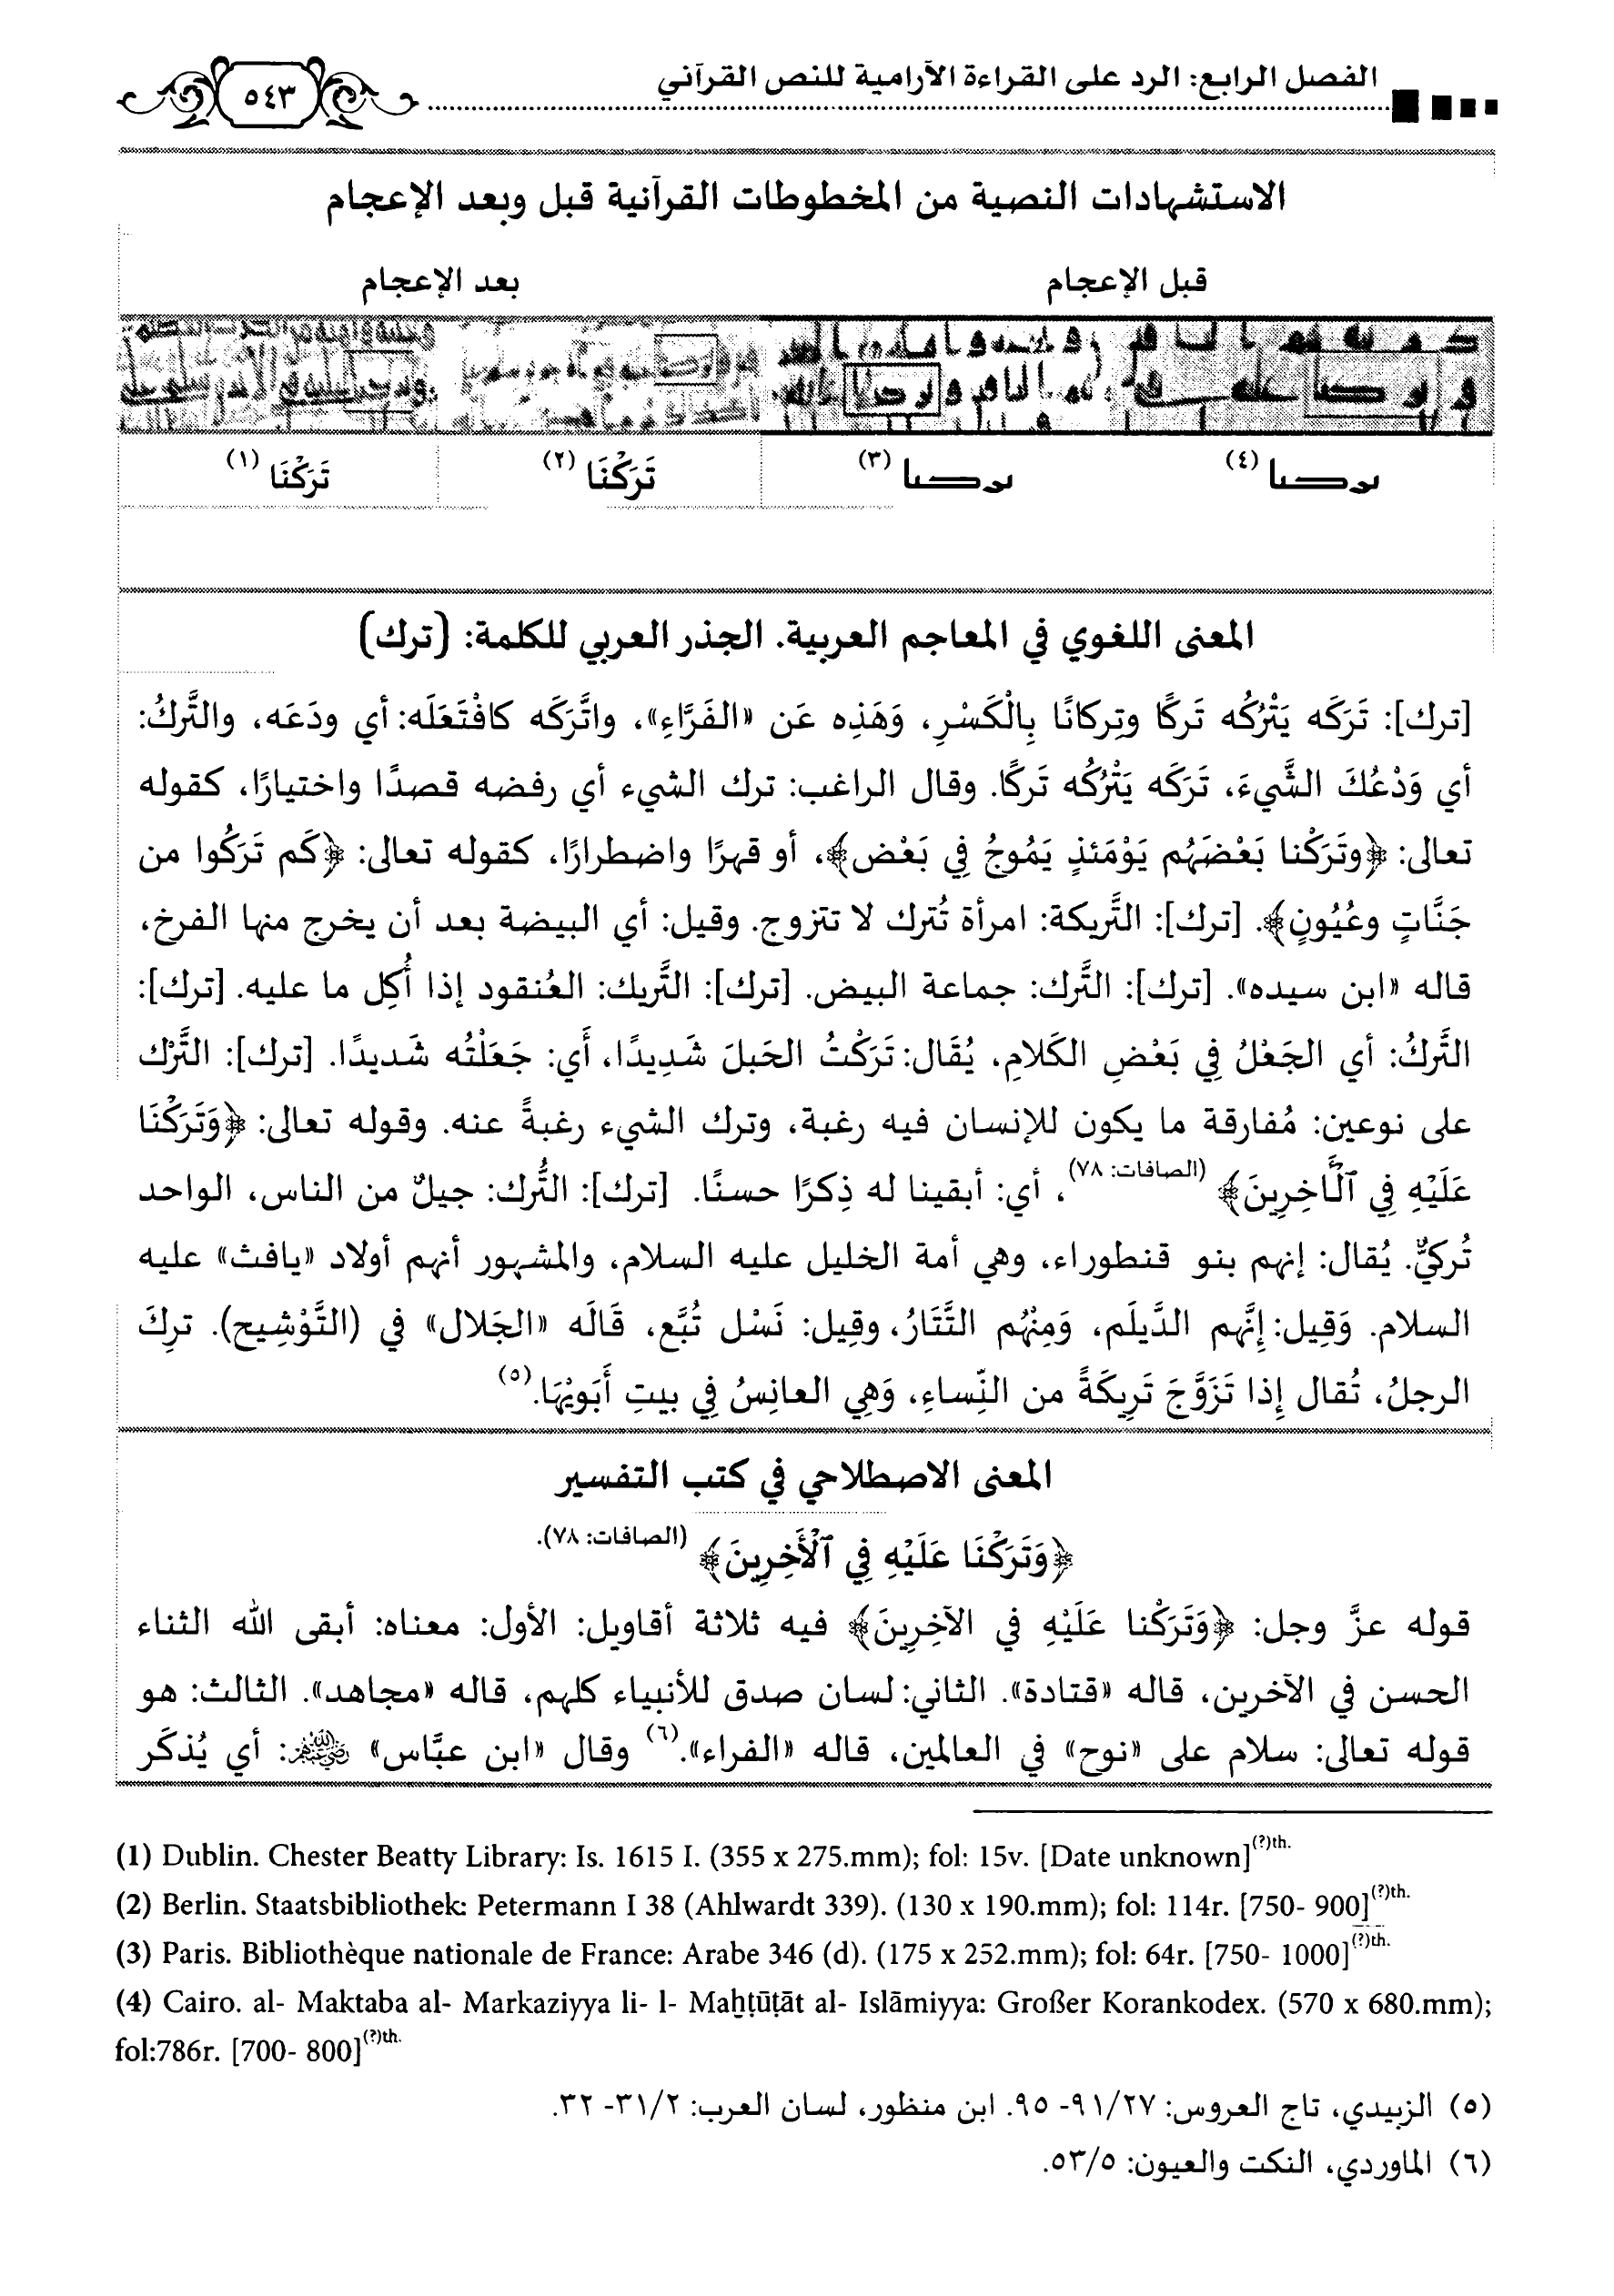 الفصل الرابع: الرد على القراءة الآرامية للنص القرآني
٥٤٣
الاستشهادات النصية من المخطوطات القرآنية قبل وبعد الإعجام
قبل الإعجام
بعد الإعجام
(٤)
(٣)
تَرَكْنَا (٢)
تَرَكْنَا (١)
المعنى اللغوي في المعاجم العربية. الجذر العربي للكلمة: (ترك)
[ترك]: تَرَكَه يَتْرُكُه تَركًا وتِركانًا بِالْكَسْرِ، وَهَذِه عَن «الفَرَّاءِ»، واتَّرَكَه كافْتَعَلَه: أي ودَعَه، والتَّركُ:
أي وَدْعُكَ الشَّيءَ، تَرَكَه يَتْرُكُه تَركًا. وقال الراغب: ترك الشيء أي رفضه قصدًا واختيارًا، كقوله
تعالى: ﴿وتَرَكْنا بَعْضَهُم يَوْمَئذٍ يَمُوجُ فِي بَعْض﴾، أو قهرًا واضطرارًا، كقوله تعالى: ﴿كَم تَرَكُوا من
جَنَّاتٍ وعُيُونٍ﴾. [ترك]: التَّريكة: امرأة تُترك لا تتزوج. وقيل: أي البيضة بعد أن يخرج منها الفرخ،
قاله «ابن سيده». [ترك]: التَّرك: جماعة البيض. [ترك]: التَّريك: العُنقود إذا أُكِل ما عليه. [ترك]:
التَّركُ: أي الجَعْلُ فِي بَعْضِ الكَلامِ، يُقَال: تَرَكْتُ الحَبلَ شَدِيدًا، أَي: جَعَلْتُه شَديدًا. [ترك]: التَّرْك
على نوعين: مُفارقة ما يكون للإنسان فيه رغبة، وترك الشيء رغبةً عنه. وقوله تعالى: ﴿وَتَرَكْنَا
عَلَيْهِ فِي ٱلْأَخِرِينَ﴾ (الصافات: ٧٨)، أي: أبقينا له ذِكرًا حسنًا. [ترك]: التُّرك: جيلٌ من الناس، الواحد
تُركيٌّ. يُقال: إنهم بنو قنطوراء، وهي أمة الخليل عليه السلام، والمشهور أنهم أولاد «يافث» عليه
السلام. وَقِيل: إِنَّهم الدَّيلَم، وَمِنْهُم التَّتَارُ، وقِيل: نَسْل تُبَّع، قَالَه «الجَلال» في (التَّوْشِيح). ترِكَ
الرجلُ، تُقال إِذا تَزَوَّجَ تَرِيكَةً من النِّساءِ، وَهِي العانِسُ فِي بيتِ أَبَويْهَا.(٥)
المعنى الاصطلاحي في كتب التفسير
﴿وَتَرَكْنَا عَلَيْهِ فِي ٱلْأَخِرِينَ﴾ (الصافات: ٧٨).
قوله عزَّ وجل: ﴿وَتَرَكْنا عَلَيْهِ في الآخِرِينَ﴾ فيه ثلاثة أقاويل: الأول: معناه: أبقى الله الثناء
الحسن في الآخرين، قاله «قتادة». الثاني: لسان صدق للأنبياء كلهم، قاله «مجاهد». الثالث: هو
قوله تعالى: سلام على «نوح» في العالمين، قاله «الفراء».(٦) وقال «ابن عبَّاس» : أي يُذكَر
(1) Dublin. Chester Beatty Library: Is. 1615 I. (355 x 275.mm); fol: 15v. [Date unknown](?)th.
(2) Berlin. Staatsbibliothek: Petermann I 38 (Ahlwardt 339). (130 x 190.mm); fol: 114r. [750- 900](?)th.
(3) Paris. Bibliothèque nationale de France: Arabe 346 (d). (175 x 252.mm); fol: 64r. [750- 1000](?)th.
(4) Cairo. al- Maktaba al- Markaziyya li- l- Maḫṭūṭāt al- Islāmiyya: Großer Korankodex. (570 x 680.mm);
fol:786r. [700- 800](?)th.
(٥) الزبيدي، تاج العروس: ٩١/٢٧- ٩٥. ابن منظور، لسان العرب: ٣١/٢- ٣٢.
(٦) الماوردي، النكت والعيون: ٥٣/٥.